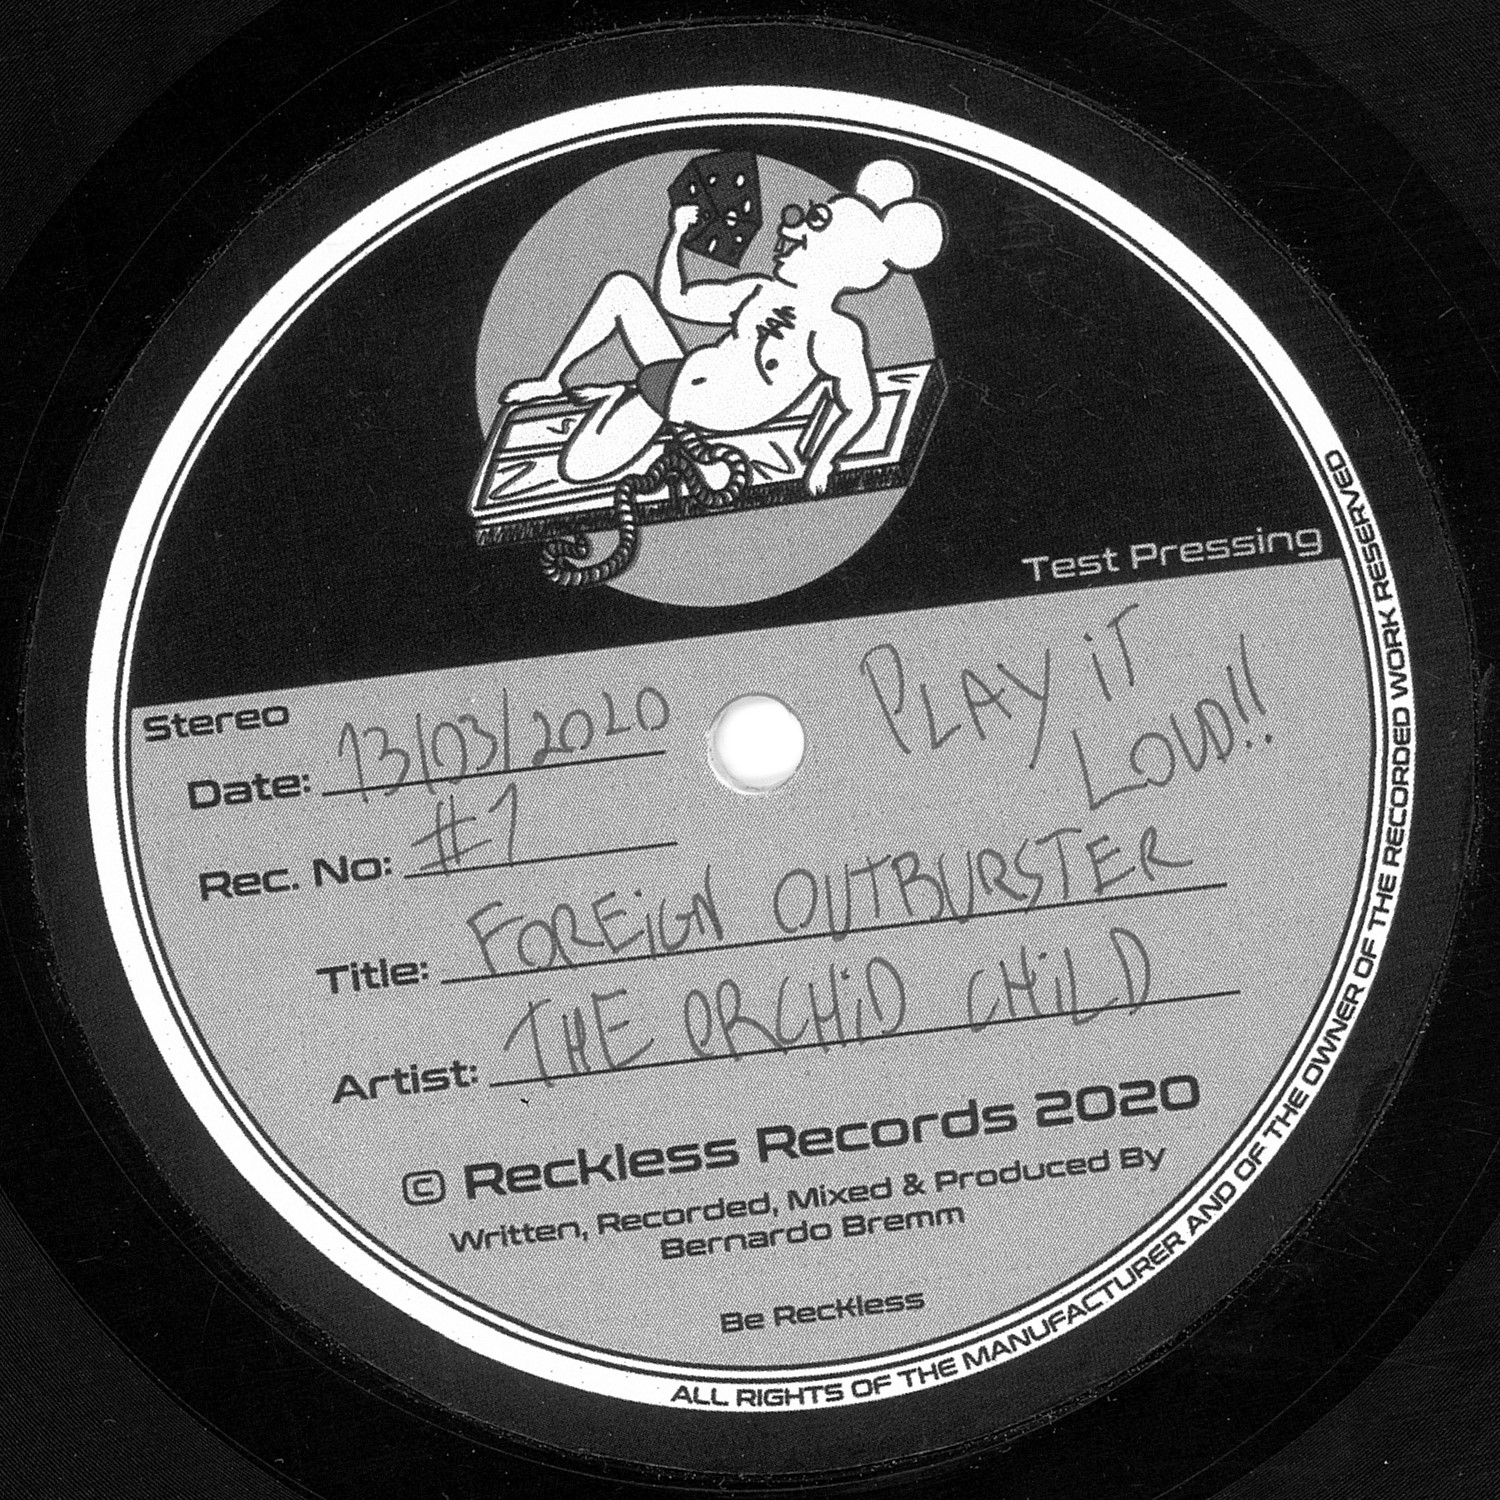 Test Pressing
Stereo
PLAY iT
LOUD!!
Date: 13/03/2020
Rec. No: #1
Title: FOREiGN OUTBURSTER
Artist: THE ORCHiD CHiLD
© Reckless Records 2020
Written, Recorded, Mixed & Produced By
Bernardo Bremm
Be Reckless
ALL RIGHTS OF THE MANUFACTURER AND OF THE OWNER OF THE RECORDED WORK RESERVED